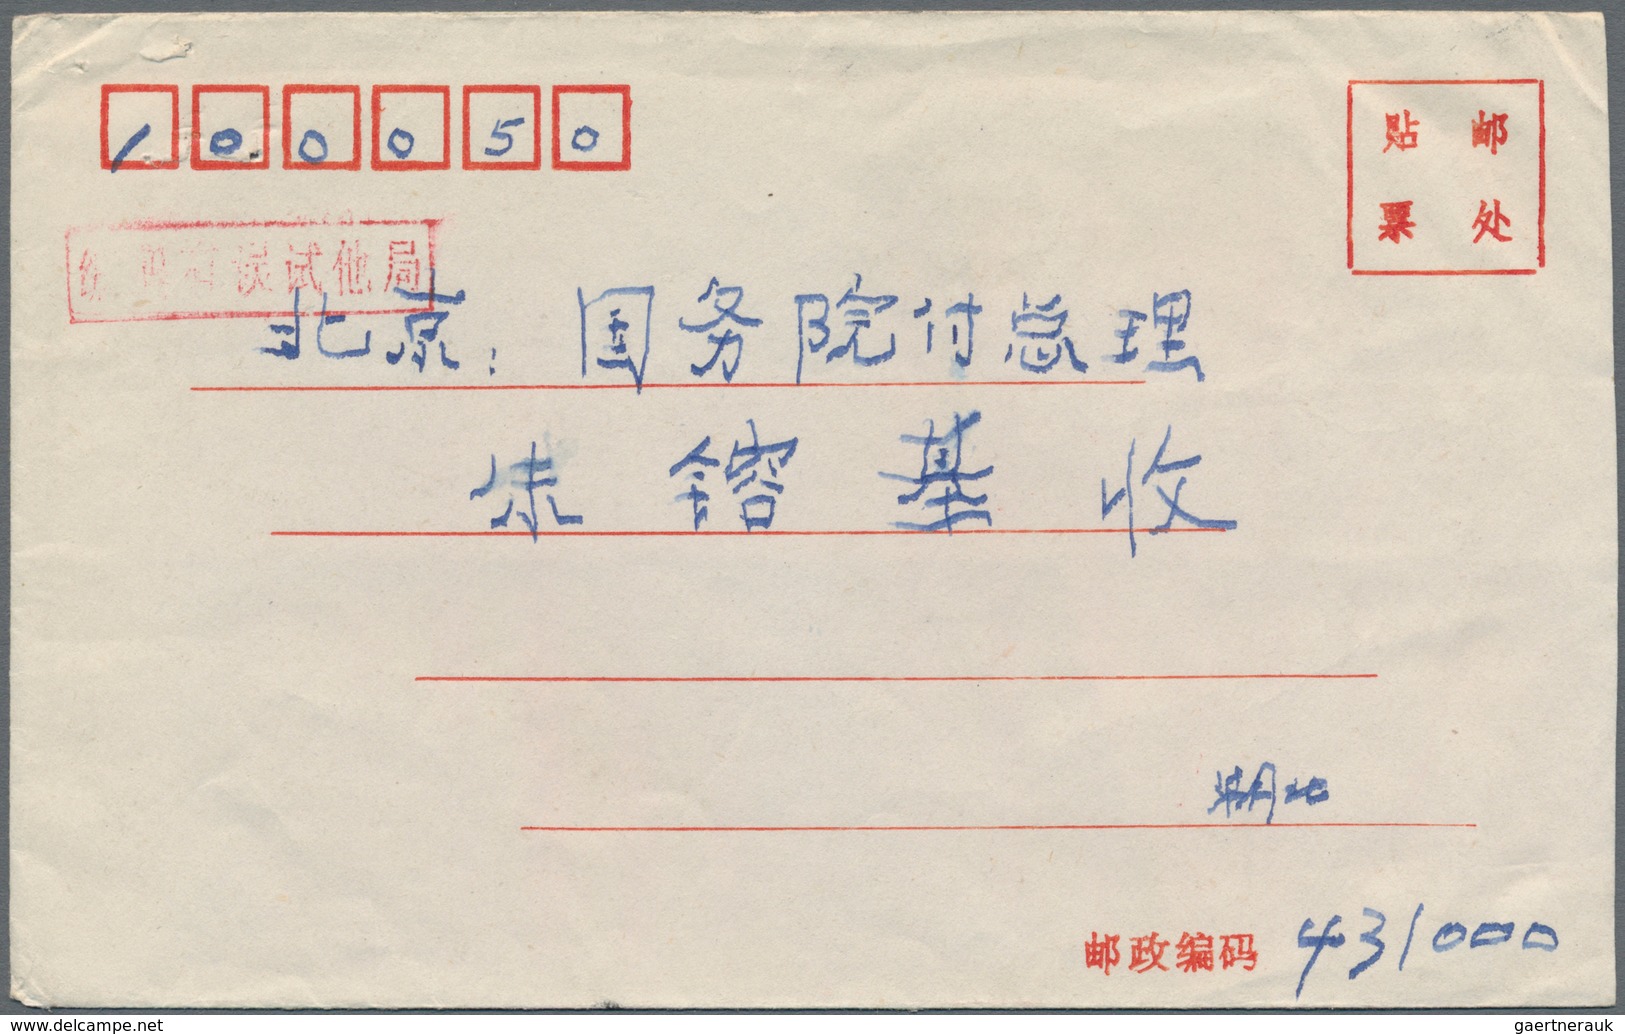 100050
贴 邮
票 处
试他局
北京：国务院付总理
朱镕基收
湖北
邮政编码 431000
www.delcampe.net
gaertnerauk